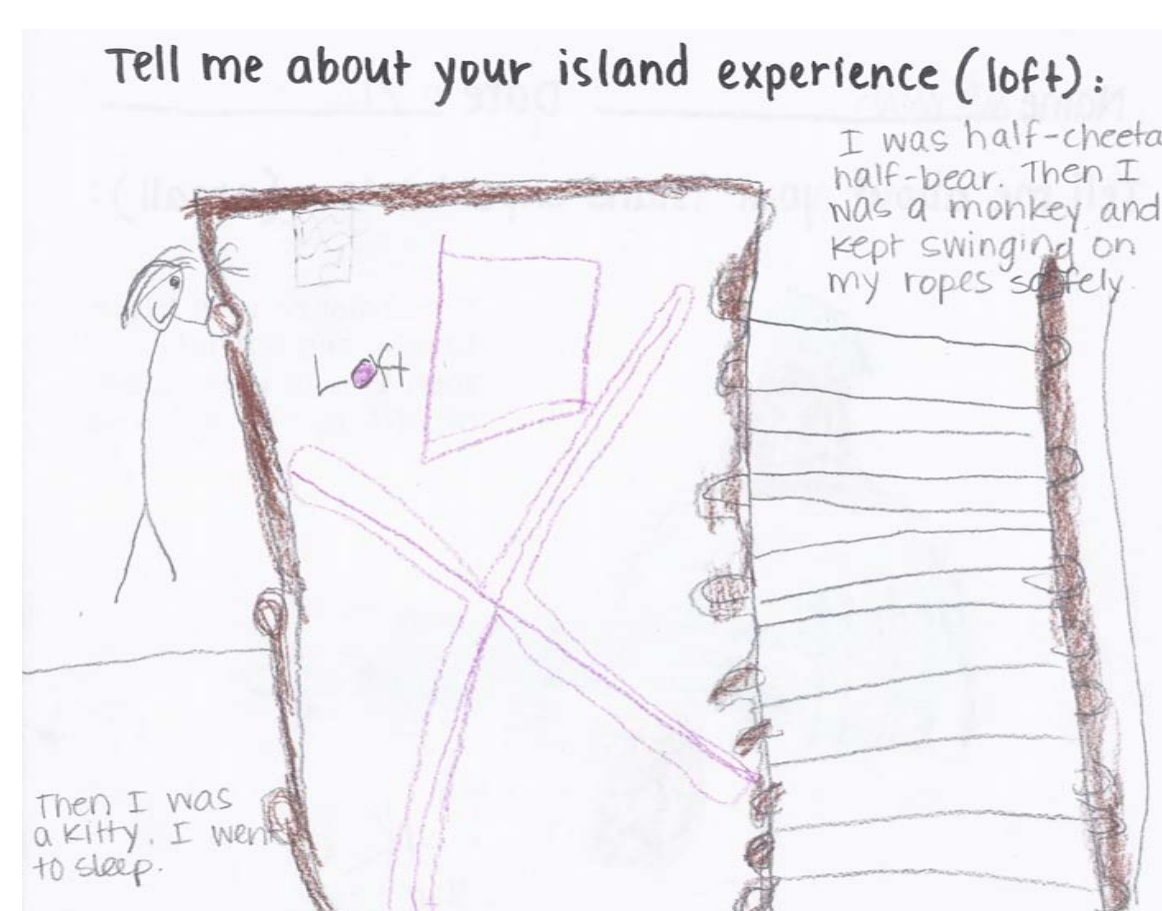 Tell me about your island experience (loft):
I was half-cheeta
half-bear. Then I
was a monkey and
kept swinging on
my ropes safely.
Loft
Then I was
a kitty. I went
to sleep.